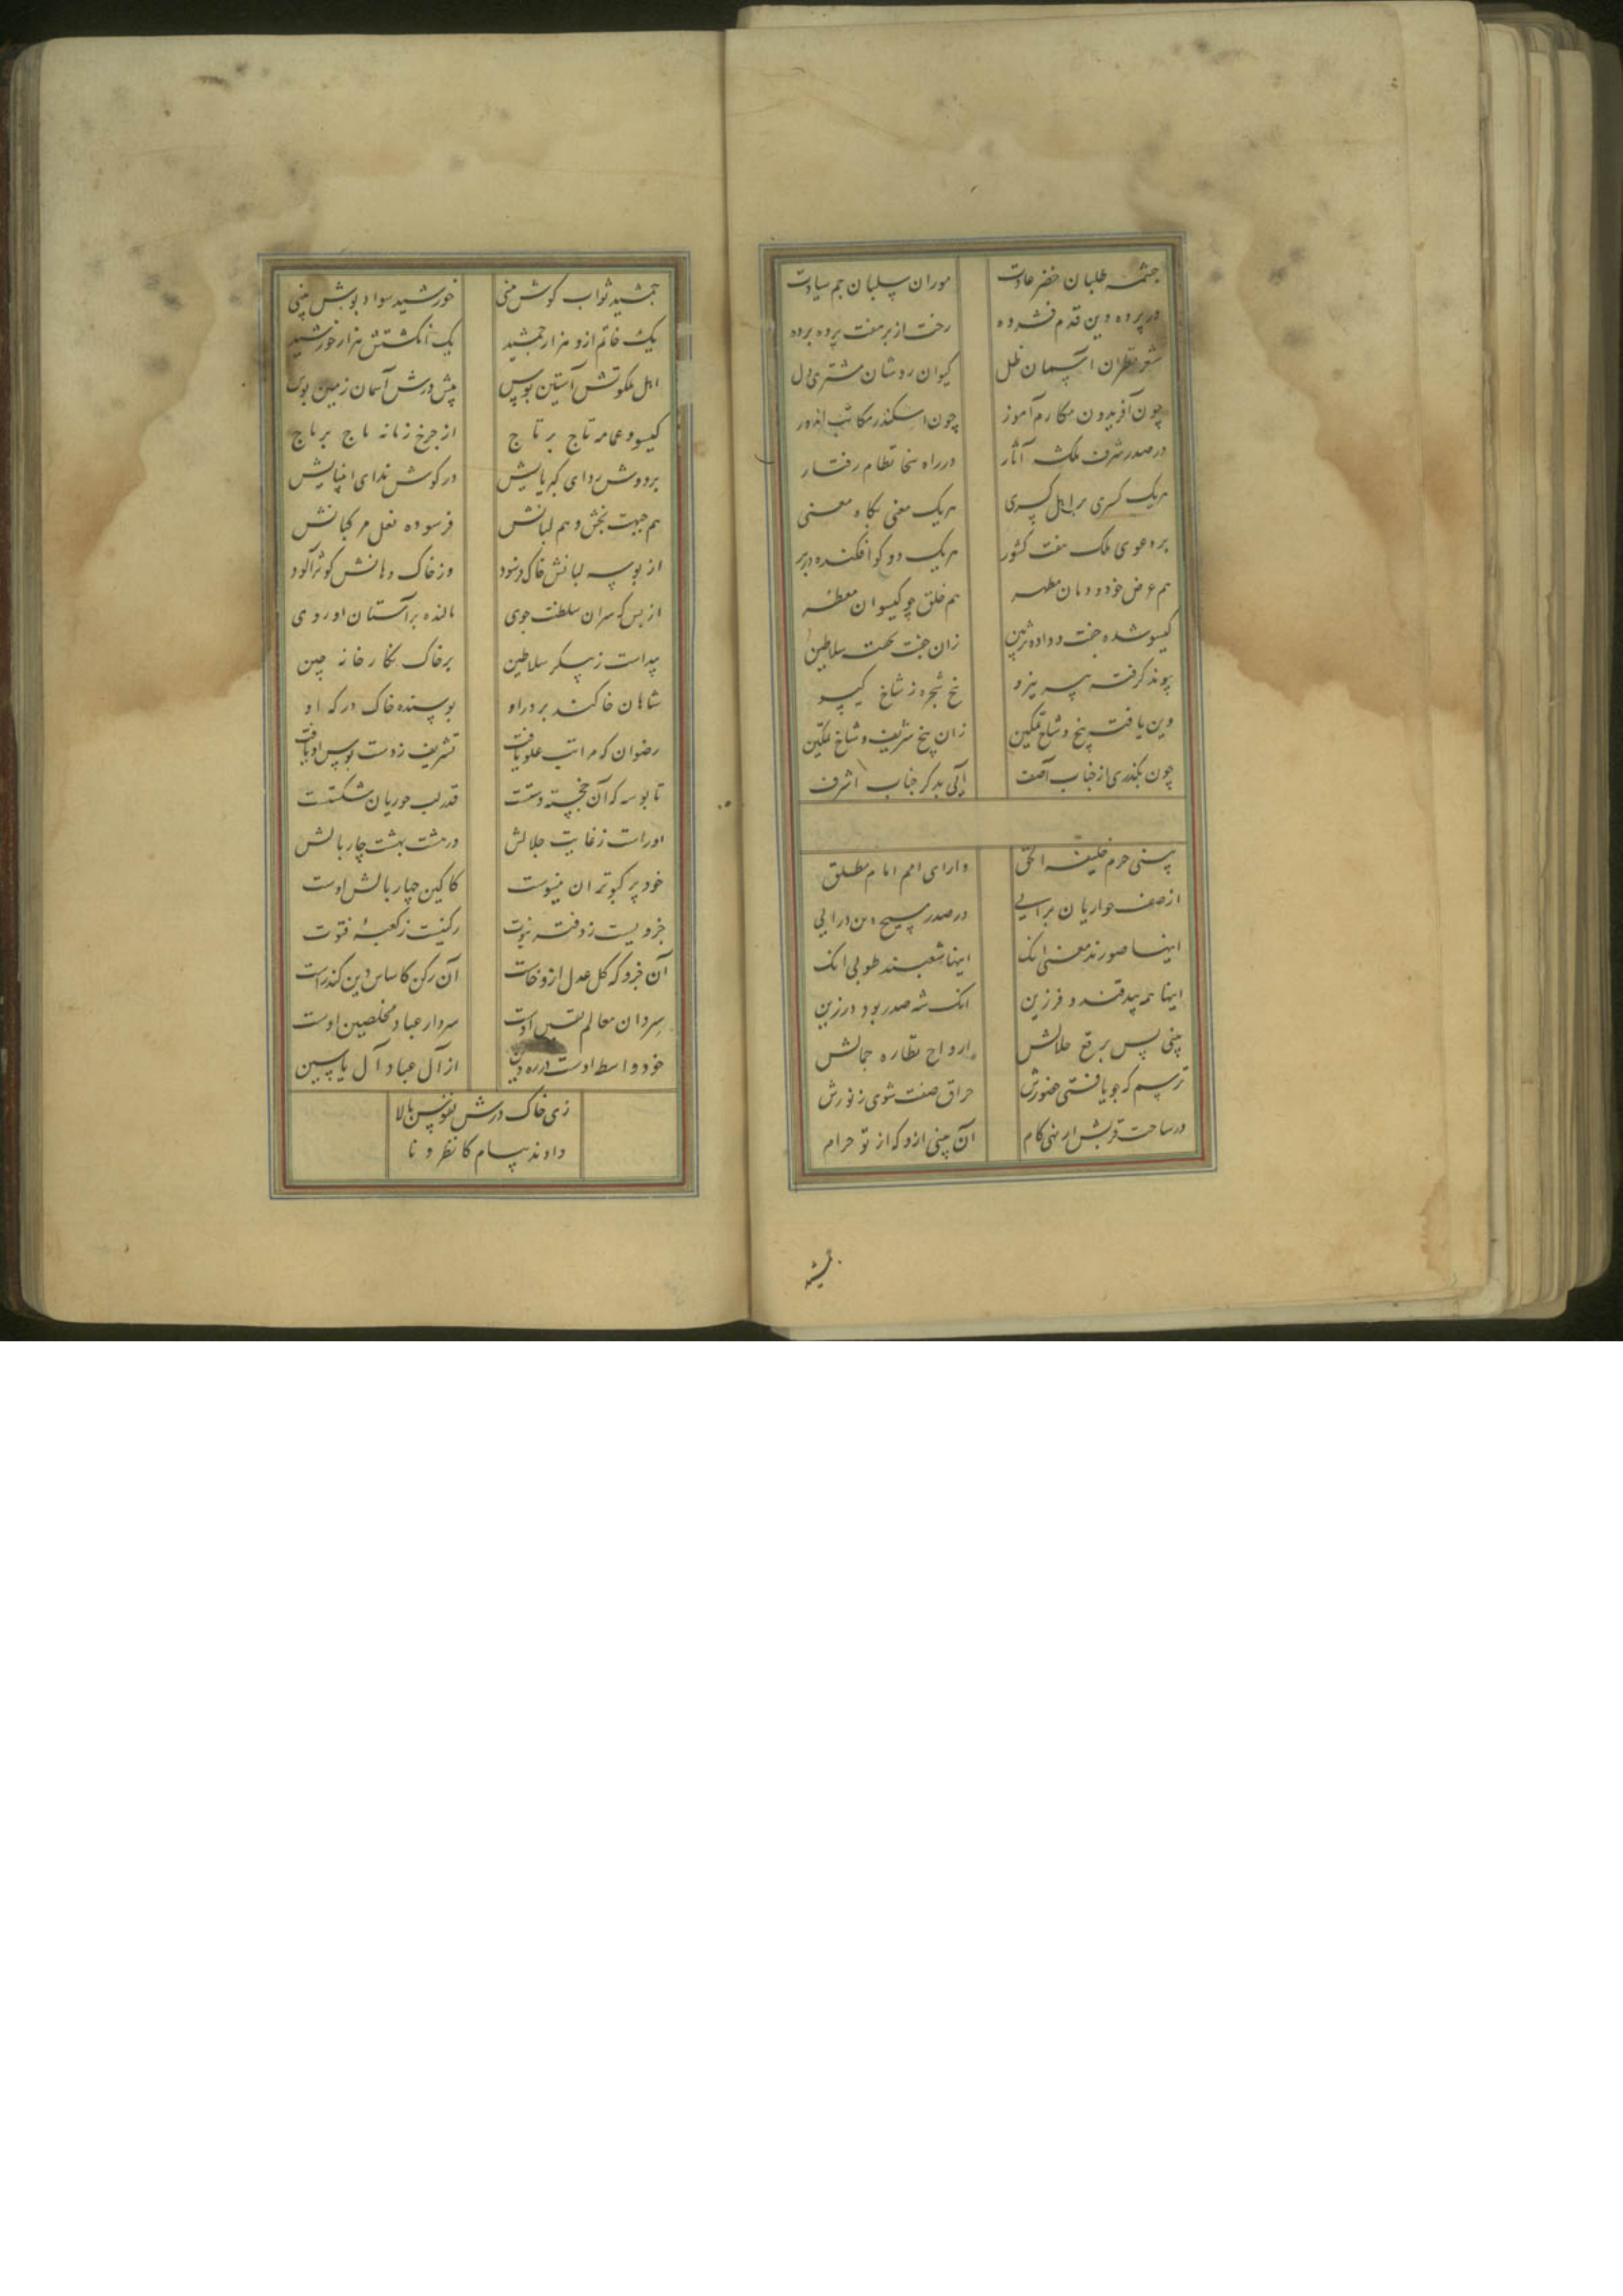 چشمه طلبان خضر عادت موران سلیمان جم سیادت
در پرده دین قدم فشرده رخت از بر هفت پرده برده
شعر نظران آسمان ظل کیوان روشان مشتری دل
چون آفریدون مکارم آموز چون اسکندر مکاتب اندوز
در صدر شرف ملکشه آثار در راه سخا نظام رفتار
هریک کسری بر اهل کسری هریک معنی نکاه معنی
بر دعوی ملک هفت کشور هریک دو کوا فکنده در بر
هم عرض خود و دمان مطهر هم خلق چو کیسوان معطر
کیسو شده جفت و داده تزیین زان جفت تحت سلاطین
پیوند کرفته بهر نیرو بخ شجره ز شاخ کیسو
دین یافت بیخ و شاخ تمکین زان بیخ شریف و شاخ تمکین
چون بکذری از جناب آصف آیی بدکر جناب اشرف
بینی حرم خلیفة الحق دارای امم امام مطلق
از صف حواریان برآیی در صدر مسیح دین درآیی
اینها صورند معنی آنک اینها شعبند طوبی آنک
اینها همه بیدقند و فرزین آنک شه صدر بود درزین
بینی پس برقع جلالش ارواح نظاره جمالش
ترسم که چو یافتی حضورش حراق صفت شوی ز نورش
در ساحت قربش ار نهی کام آن بینی ازو که از تو حرام
جمشید ثواب کوش بینی خورشید سواد پوش بینی
یک خاتم ازو هزار جمشید یک انکشتش هزار خورشید
اهل ملکوتش آستین بوس پیش درش آسمان زمین بوس
کیسو و عمامه تاج بر تاج از چرخ زمانه باج بر باج
بر دوش ردای کبریاییش در کوش ندای انبیاییش
هم جبهت بخش و هم لبانش فرسوده نعل مرکبانش
از بوسه لبانش خاک فرسود وز خاک دهانش کوثر آلود
از بس که سران سلطنت جوی مالنده بر آستان او روی
پیداست ز پیکر سلاطین بر خاک نکارخانه چین
شاهان خاکند بر در او بوسنده خاک درکه او
رضوان که مراتب علو یافت تشریف ز دست بوس او یافت
تا بوسه که آن خجسته دستست قدر لب حوریان شکستست
او راست ز غایت جلالش در هشت بهشت چار بالش
خود پر کبوتران مینوست کاکین چهار بالش اوست
جزویست ز دفتر نبوت رکنیست ز کعبه فتوت
آن جزو که کل عدل ازو خاست آن رکن کاساس دین کند راست
سردان معالم یقین اوست سردار عباد مخلصین اوست
خود واسط اوست در ره دین از آل عبا و آل یاسین
زی خاک درش نفوس بالا
دادند پیام کانظرونا